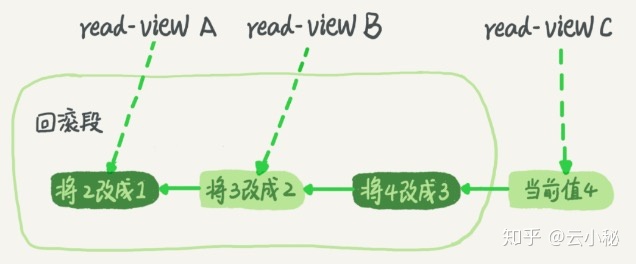 read-view A
read-view B
read-view C
回滚段
将2改成1
将3改成2
将4改成3
当前值4
知乎 @云小秘